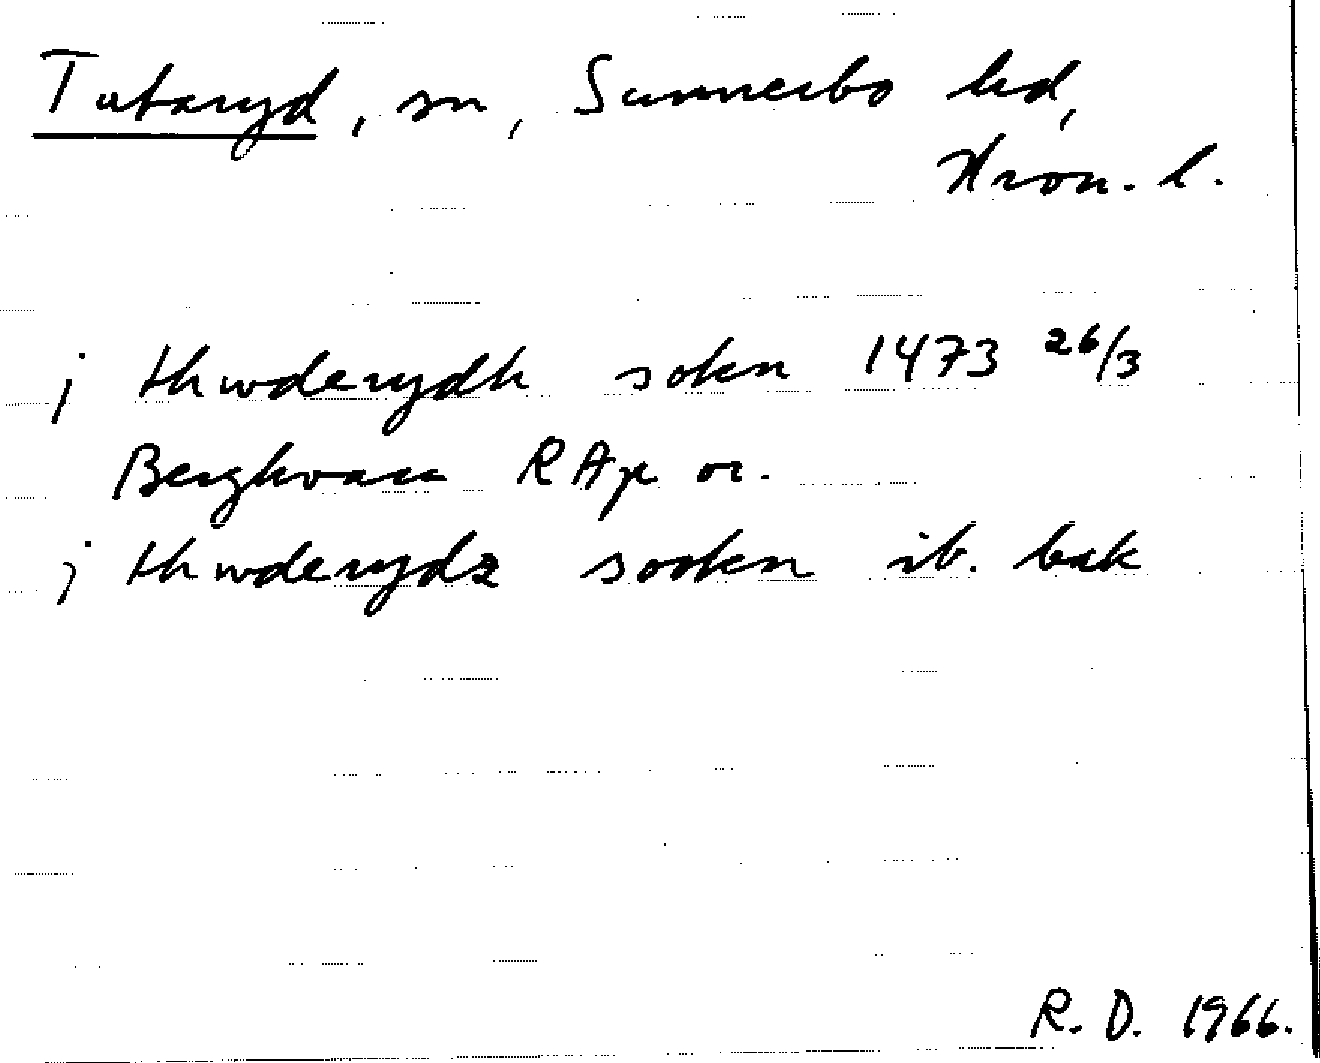 Tutaryd, sn, Sunnerbo hd,
Kron. l.
j thwderydh sokn 1473 26/3
Berghvara RAp or.
j thwderydz sookn ib. bak
R. D. 1966.